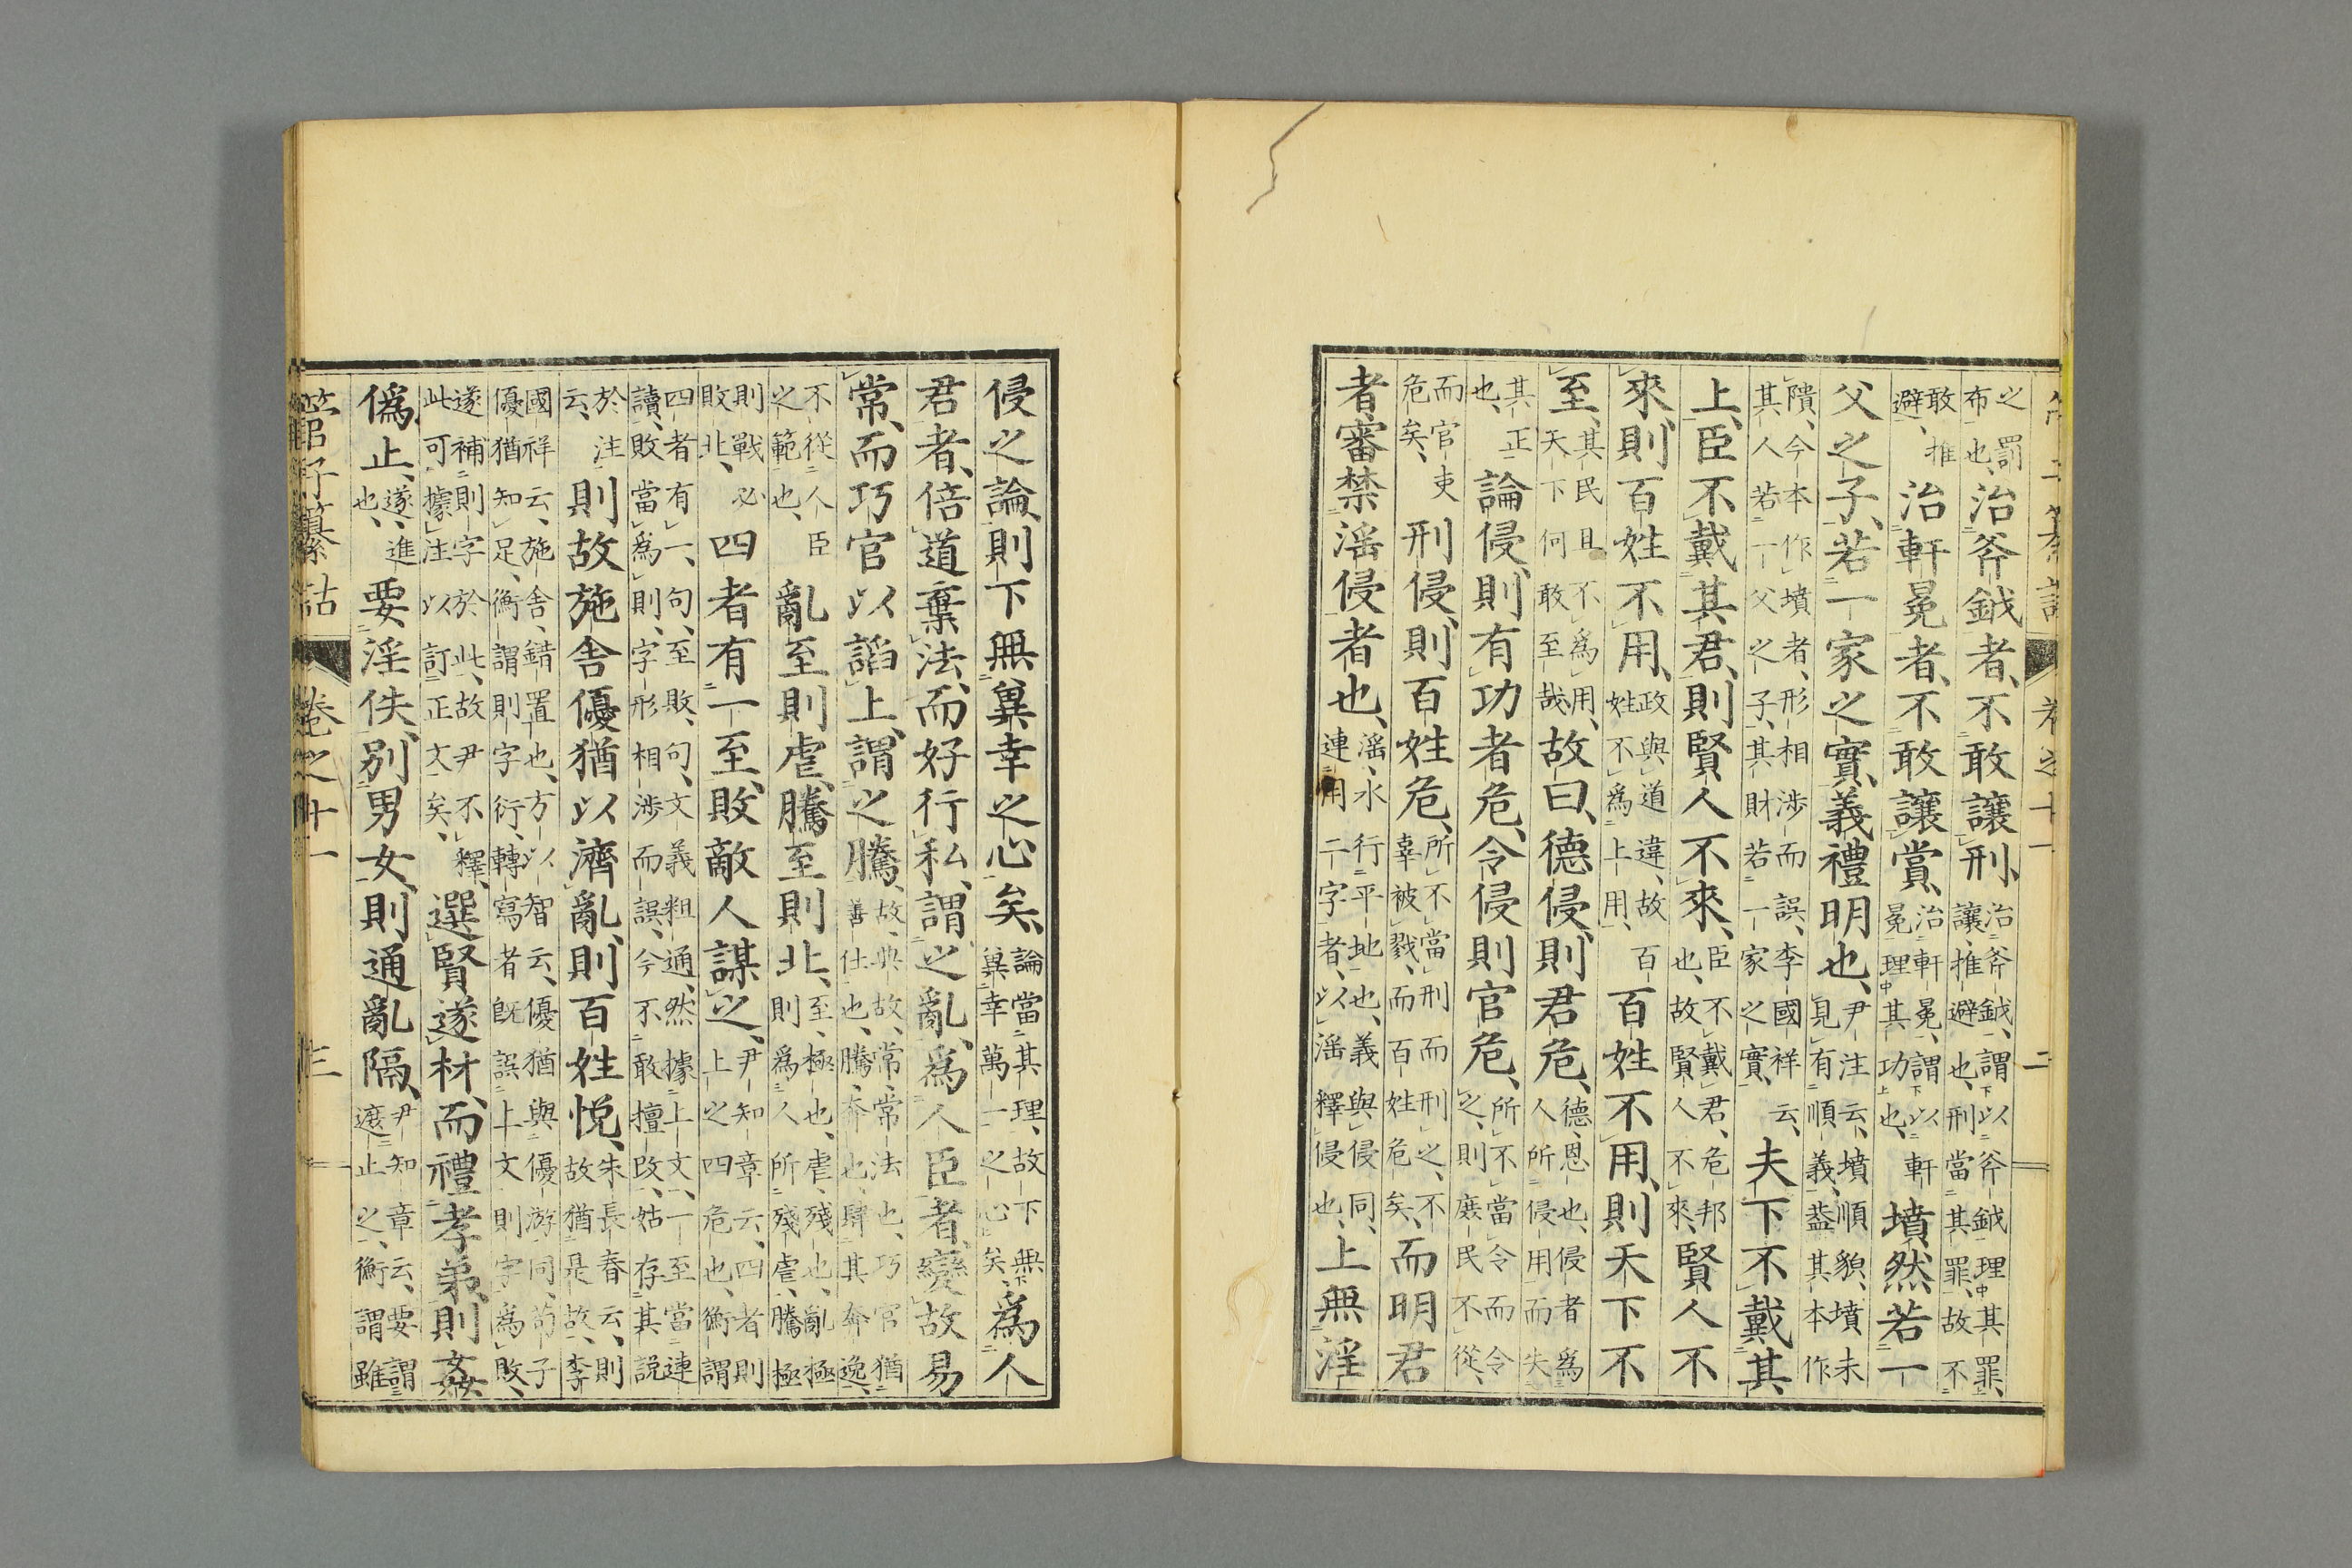 之罰
布也、
治斧鉞者、不敢讓刑、
治斧鉞、謂以斧鉞理其罪、
讓、推避也、刑當其罪、故不
敢推
避、
治軒冕者、不敢讓賞、
治軒冕、謂以軒
冕理其功也、
墳然若一
父之子、若一家之實、義禮明也、
尹注云、墳順貌、墳未
見有順義、蓋其本作
隤、今本作墳者、形相涉而誤、李國祥云、
其人若一父之子、其財若一家之實、
夫下不戴其
上、臣不戴其君、則賢人不來、
臣不戴君、危邦
也、故賢人不來、
賢人不
來、則百姓不用、
政與道違、故百
姓不爲上用、
百姓不用、則天下不
至、
其民且不爲用、
天下何敢至哉
故曰、德侵、則君危、
德、恩也、侵者爲
人所侵用而失
其正
也、
論侵、則有功者危、令侵則官危、
所不當令而令
之、則庶民不從、
而官吏
危矣、
刑侵、則百姓危、
所不當刑而刑之、不
辜被戮、而百姓危矣、
而明君
者、審禁滛侵者也、
滛、水行平地也、義與侵同、
連用二字者、以滛釋侵也、
上無淫
侵之論、則下無兾幸之心矣、
論當其理、故下無
兾幸萬一之心矣、
爲人
君者、倍道棄法、而好行私、謂之亂、爲人臣者、變故易
常、而巧官以諂上、謂之騰、
故、典故、常、常法也、巧官猶
善仕也、騰、奔也、肆其奔逸、
不從人臣
之範也、
亂至則虐、騰至則北、
至、極也、虐、殘也、亂極
則爲人所殘虐、騰極
則戰必
敗北、
四者有一至、敗敵人謀之、
尹知章云、四者則
上之四危也、衡謂
四者有一、句、至敗、句、文義粗通、然據上文、一至當連
讀、敗當爲則、字形相涉而誤、今不敢擅改、姑存其説
於注
云、
則故施舍優猶以濟亂、則百姓悦、
朱長春云、則
故猶是故、李
國祥云、施舍、錯置也、方以智云、優猶與優游同、荀子
優猶知足、衡謂則字衍、轉寫者既誤上文則字爲敗、
遂補則字於此、故尹不釋、
此可據注以訂正文矣、
選賢遂材、而禮孝弟、則姦
僞止、
遂、進
也、
要淫佚、別男女、則通亂隔、
尹知章云、要謂
遮止之、衡謂雖
管子纂詁 卷之十一 三